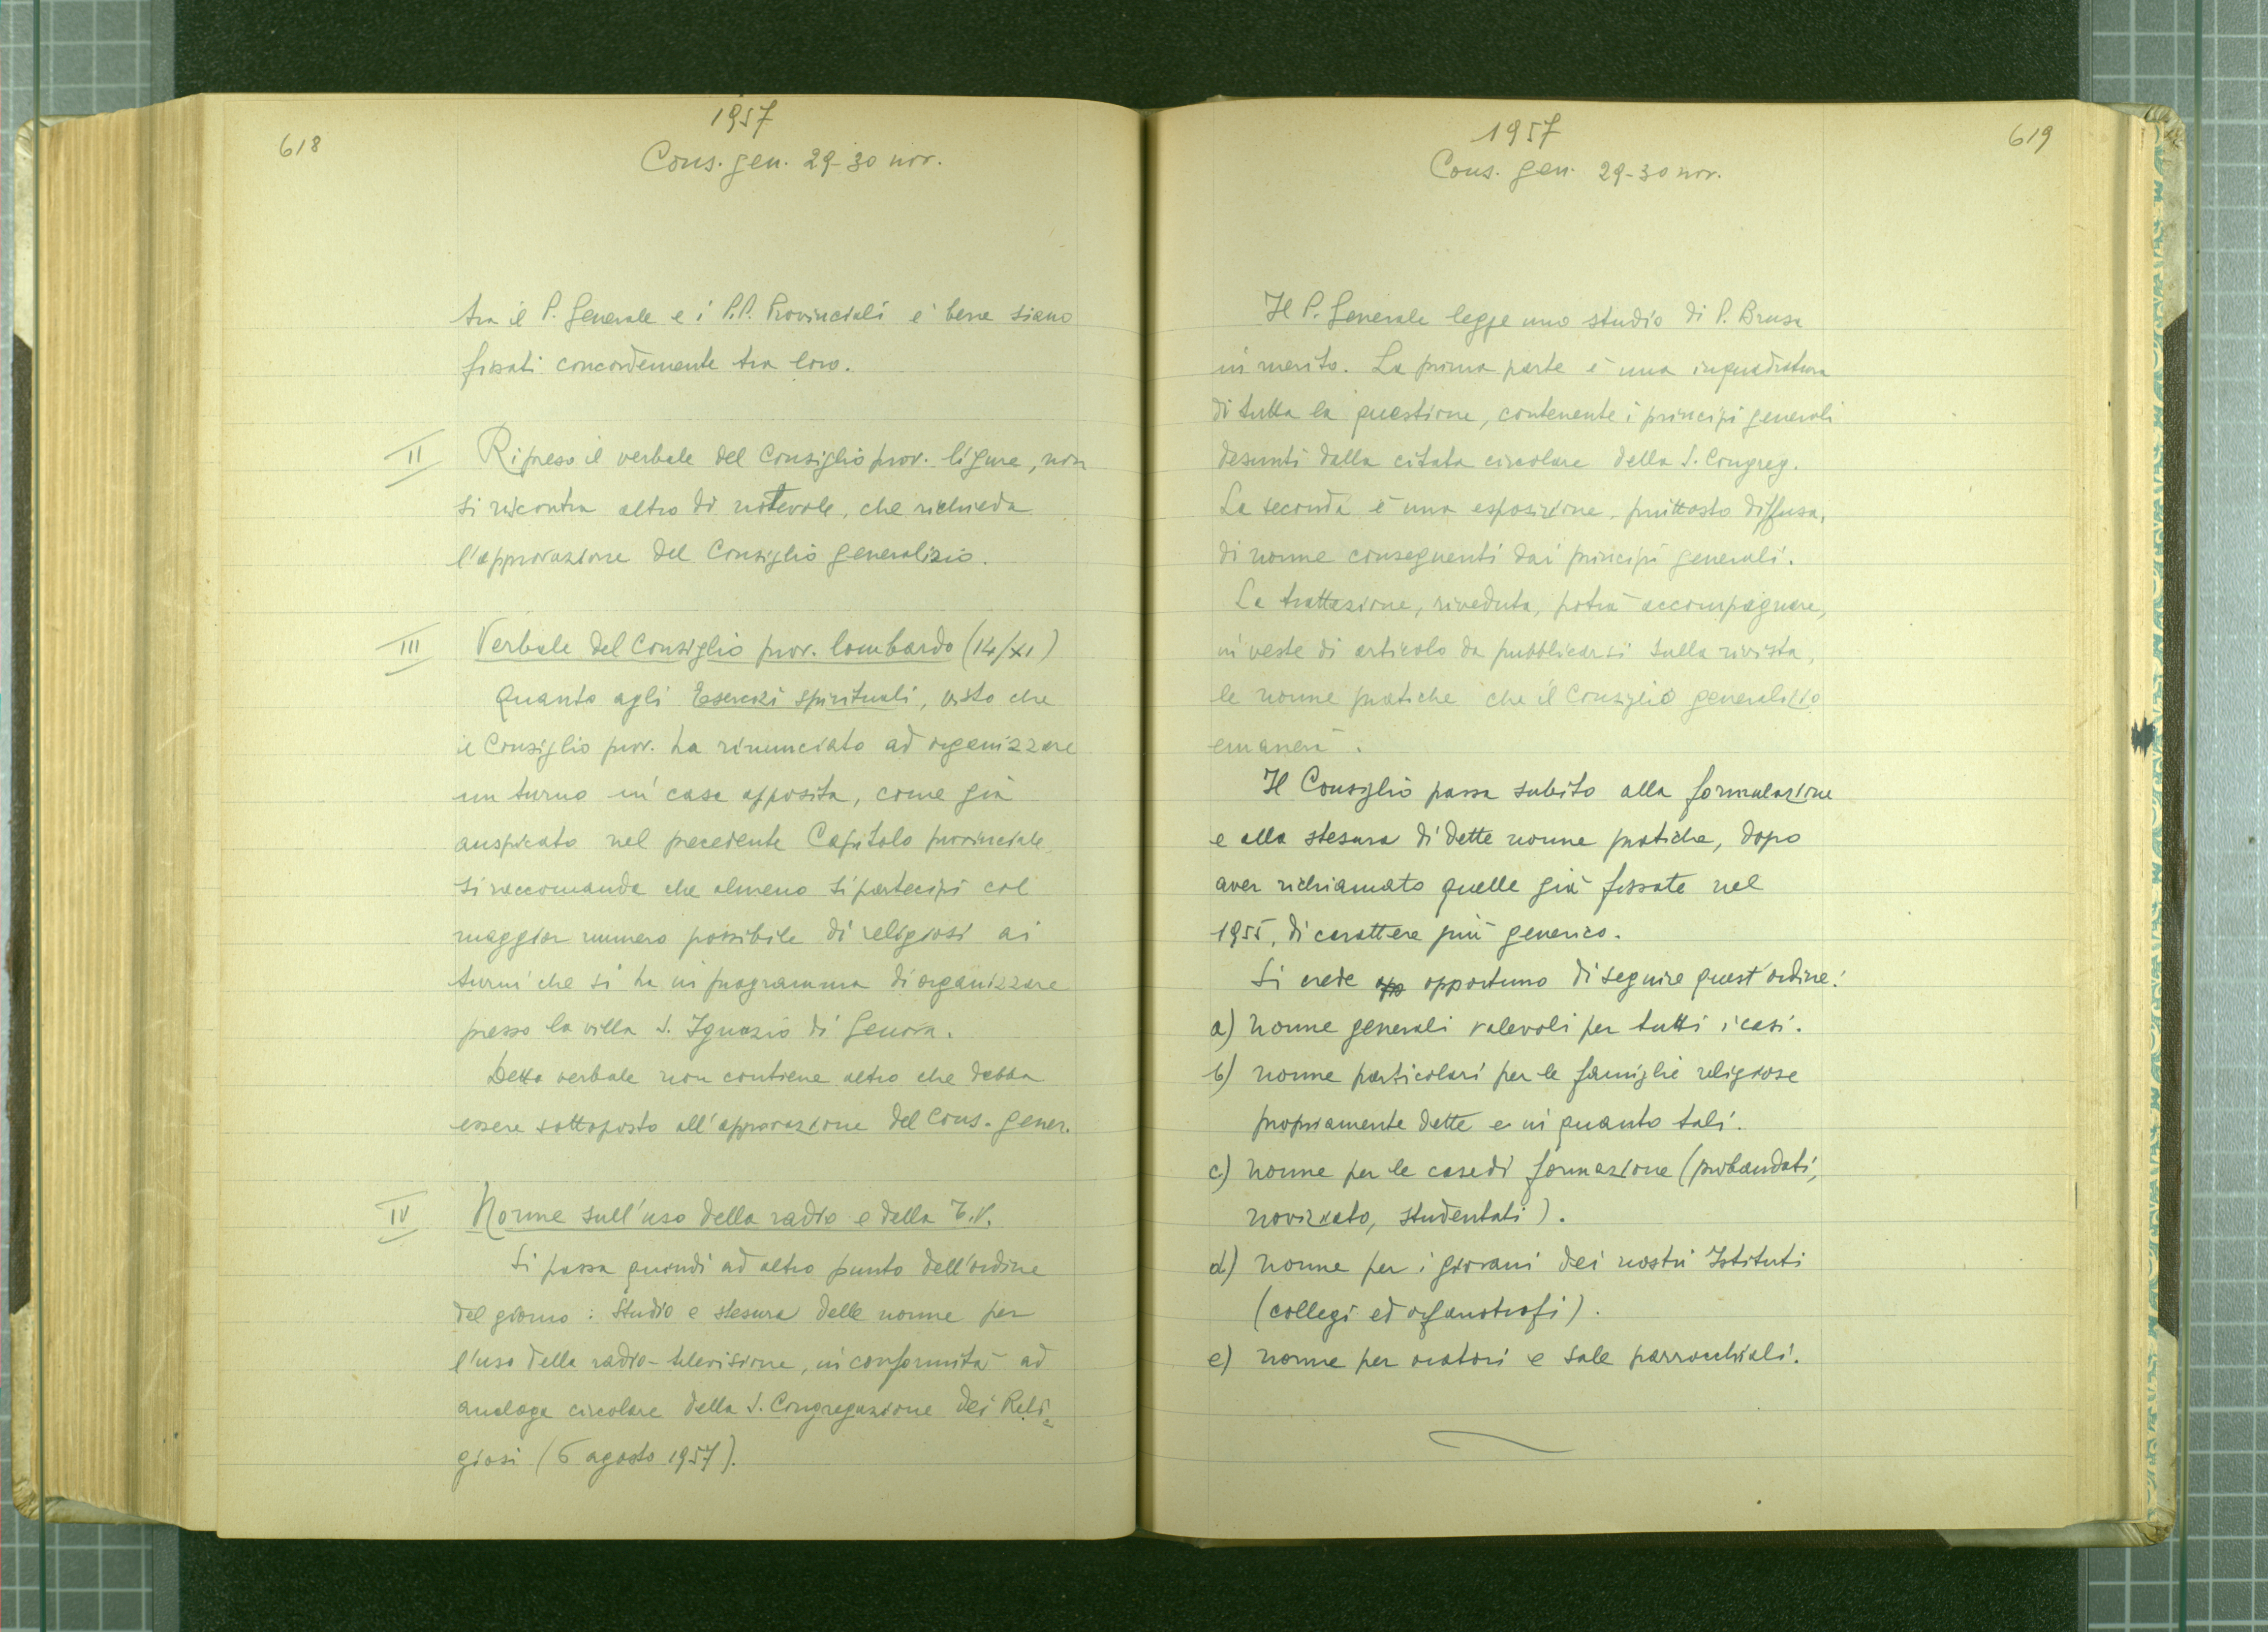 618
1957
Cons. gen. 29-30 nov.
tra il P. Generale e i P.P. Provinciali è bene siano
fissati concordemente tra loro.
II Ripreso il verbale del Consiglio prov. ligure, non
si riscontra altro di notevole, che richieda
l'approvazione del Consiglio generalizio.
III Verbale del Consiglio prov. lombardo (14/XI)
Quanto agli Esercizi spirituali, visto che
il Consiglio prov. ha rinunciato ad organizzare
un turno in casa apposita, come già
auspicato nel precedente Capitolo provinciale,
si raccomanda che almeno si partecipi col
maggior numero possibile di religiosi ai
turni che si ha in programma di organizzare
presso la villa S. Ignazio di Genova.
Detto verbale non contiene altro che debba
essere sottoposto all'approvazione del Cons. gener.
IV Norme sull'uso della radio e della T.V.
Si passa quindi ad altro punto dell'ordine
del giorno: Studio e stesura delle norme per
l'uso della radio-televisione, in conformità ad
analoga circolare della S. Congregazione dei Reli=
giosi (6 agosto 1957).
1957
619
Cons. gen. 29-30 nov.
Il P. Generale legge uno studio di P. Brusa
in merito. La prima parte è una inquadratura
di tutta la questione, contenente i principi generali
desunti dalla citata circolare della S. Congreg.
La seconda è una esposizione, piuttosto diffusa,
di norme conseguenti dai principi generali.
La trattazione, riveduta, potrà accompagnare,
in veste di articolo da pubblicarsi sulla rivista,
le norme pratiche che il Consiglio generalizio
emanerà.
Il Consiglio passa subito alla formulazione
e alla stesura di dette norme pratiche, dopo
aver richiamato quelle già fissate nel
1955, di carattere più generico.
Si crede opportuno di seguire quest'ordine:
a) norme generali valevoli per tutti i casi.
b) norme particolari per le famiglie religiose
propriamente dette e in quanto tali.
c) norme per le case di formazione (probandati,
noviziato, studentati).
d) norme per i giovani dei nostri Istituti
(collegi ed orfanotrofi).
e) norme per oratori e sale parrocchiali.